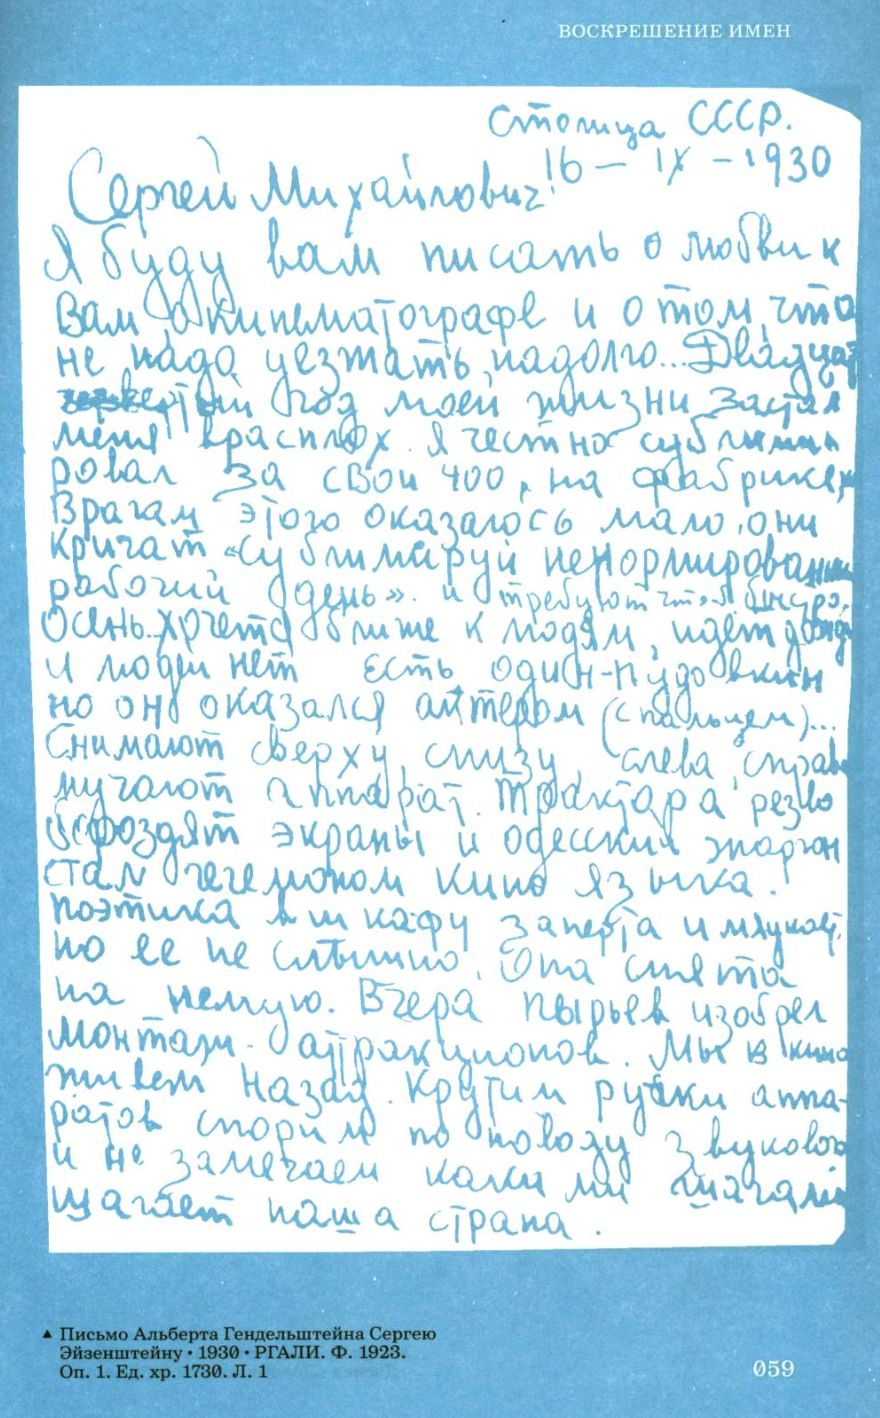 ВОСКРЕШЕНИЕ ИМЕН
Столица СССР.
16 – IX – 1930
Сергей Михайлович!
Я буду вам писать о любви к
вам, о кинематографе и о том, что
не надо уезжать надолго... Двадцат
четвертый год моей жизни застал
меня врасплох. Я честно сублими
ровал за свои 400, на фабрике,
Врагам этого оказалось мало, они
кричат „сублимируй ненормированный
рабочий день». и требуют что я
осень. хочется ближе к людям, идет дождь
и людей нет есть один – Пудовкин
но он оказался актером (с пальцем)...
Снимают сверху, снизу, слева, справа
мучают аппарат. Трактора резво
бороздят экраны и одесский жаргон
стал гегемоном кино языка.
поэтика в шкафу заперта и мяукает,
но ее не слышно. Она снята
на немую. Вчера Пырьев изобрел
монтаж аттракционов. Мы в кино
живем назад. Крутим ручки аппа-
ратов спорим по поводу звукового
и не замечаем какими шагами
шагает наша страна.
▲ Письмо Альберта Гендельштейна Сергею
Эйзенштейну • 1930 • РГАЛИ. Ф. 1923.
Оп. 1. Ед. хр. 1730. Л. 1
059